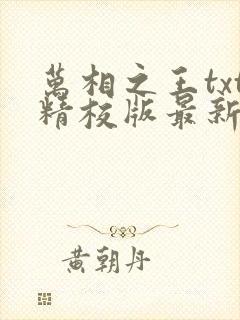 萬相之王txt
精校版最新
黄朝丹